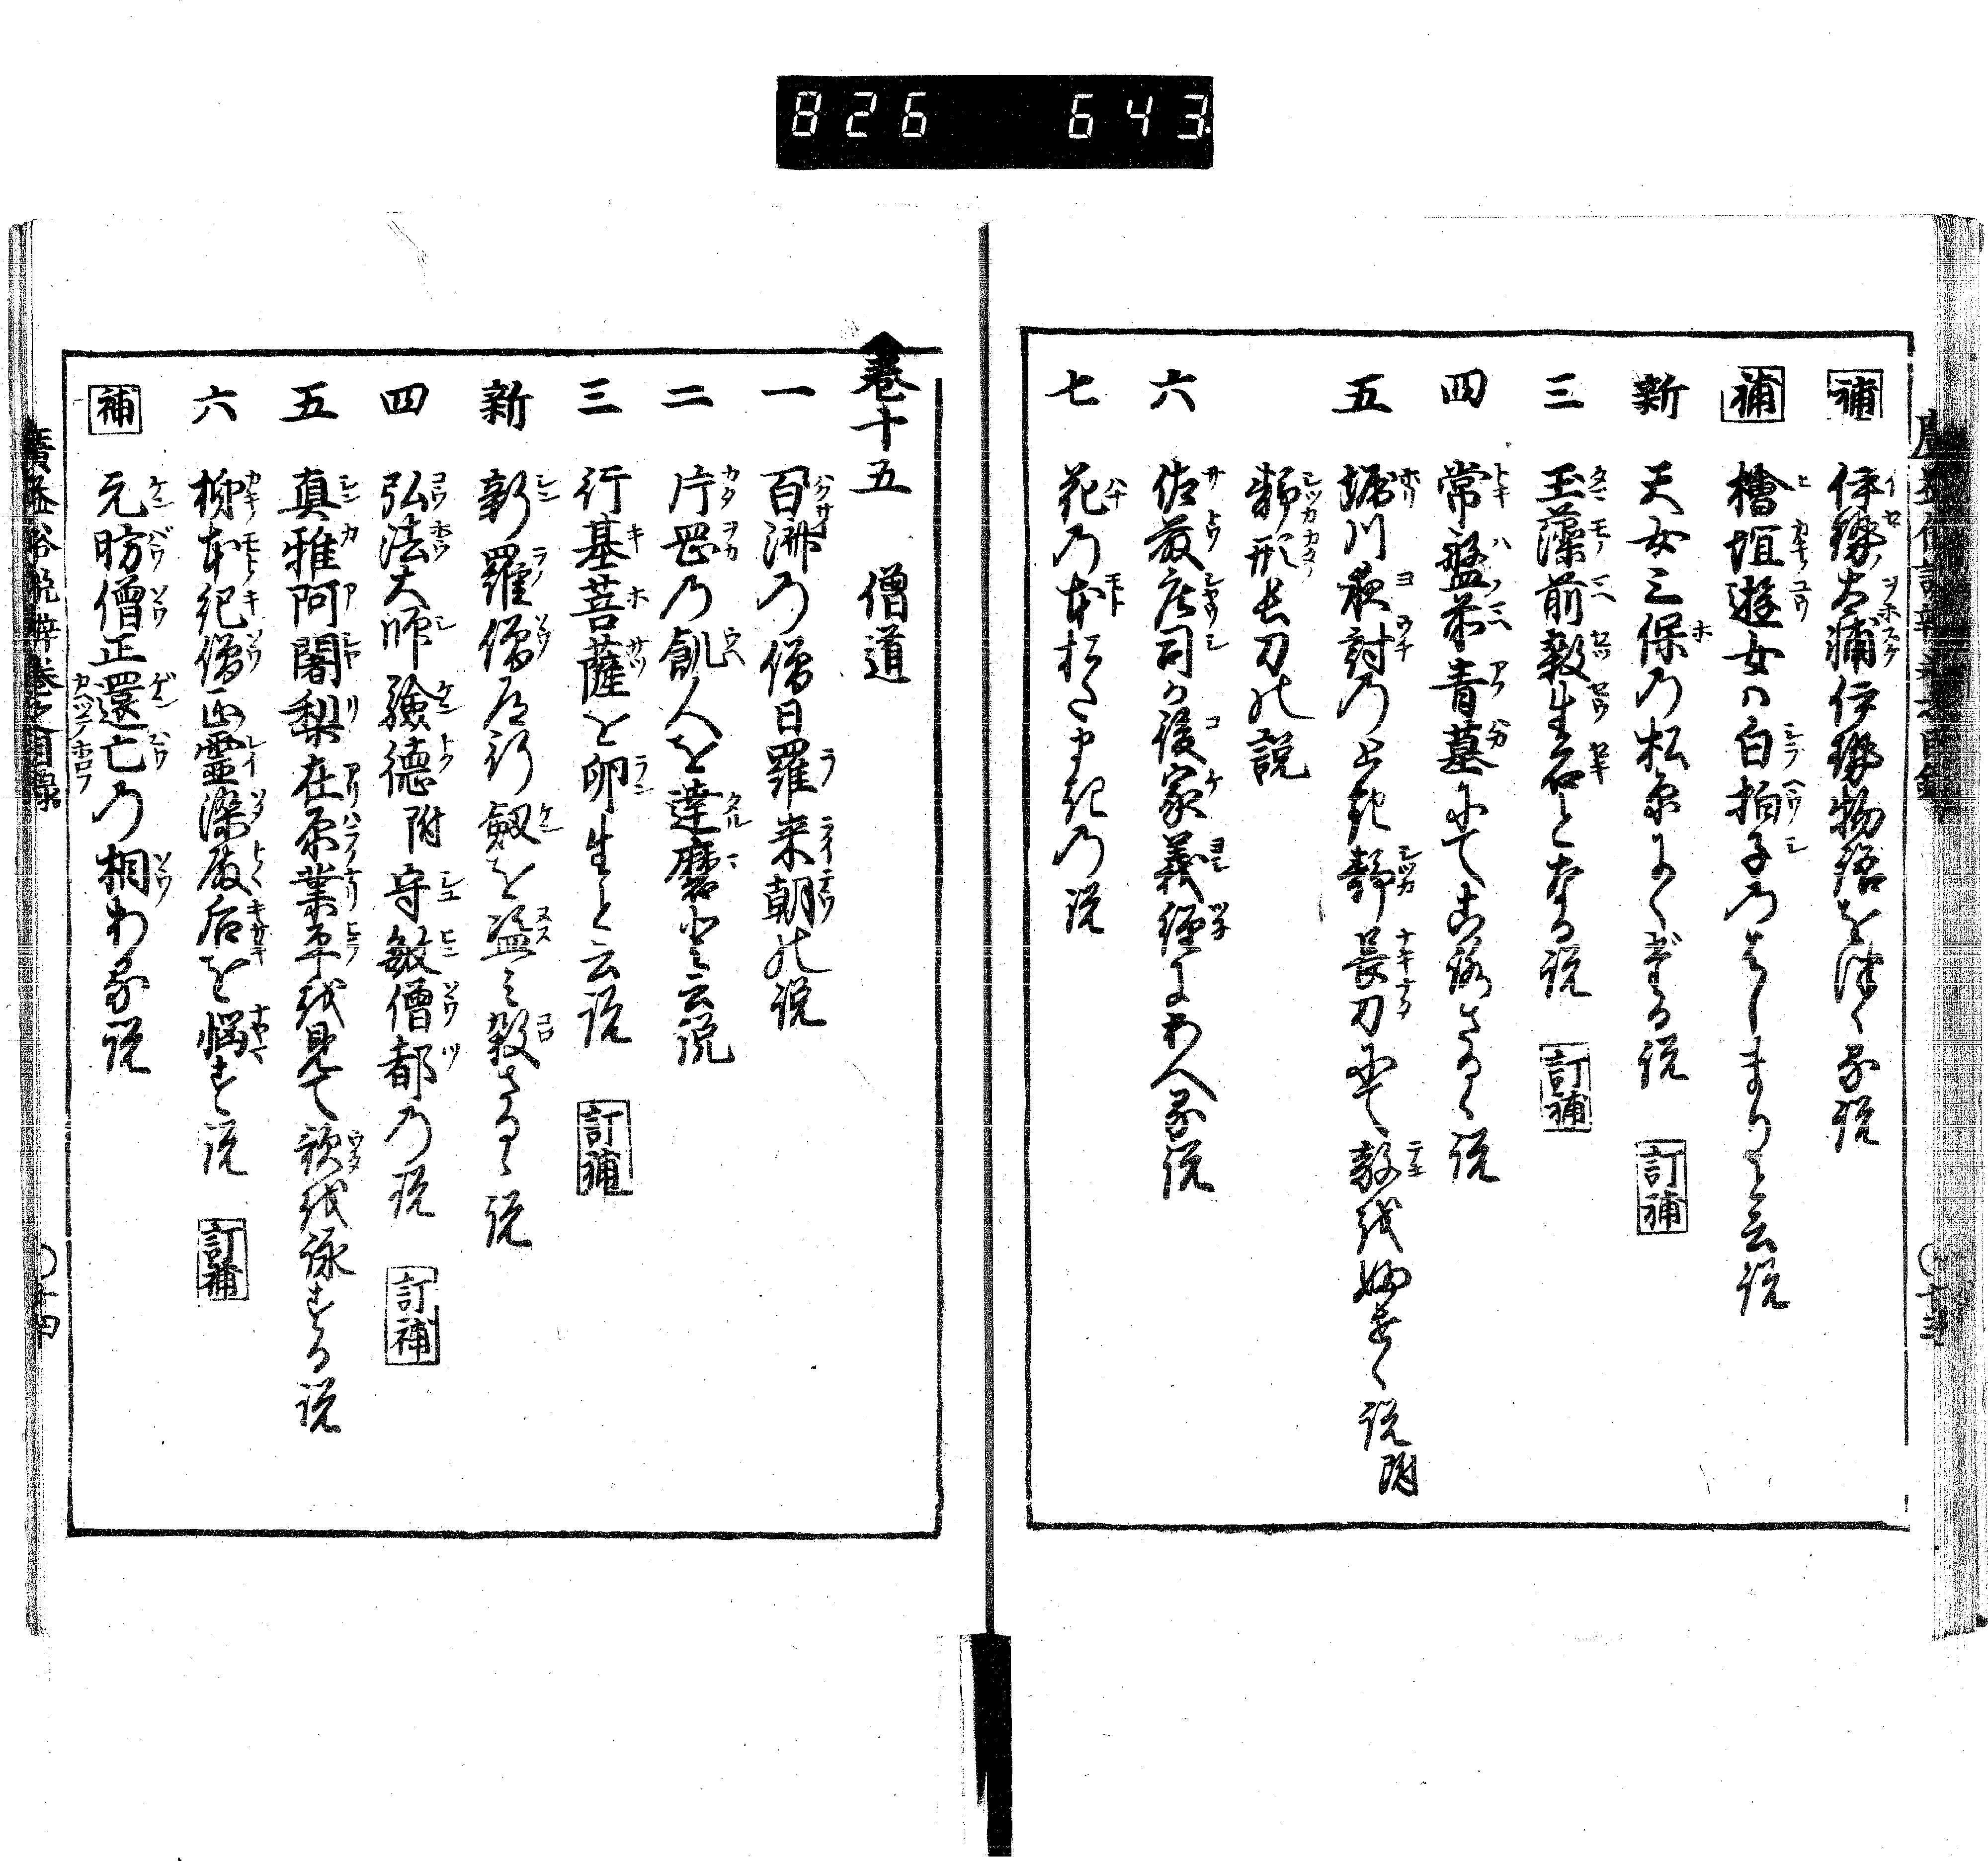 826 643
補 伊勢大輔伊勢物語を作る説
補 檜垣遊女ハ白拍子のはしまりと云説
新 天女三保の松原にくだる説 訂補
三 玉藻前殺生石となる説 訂補
四 常盤前青墓にてころさるゝ説
五 堀川夜討のとき静長刀にて敵をふせく説附
静形長刀の説
六 佐藤庄司が後家義経にあふ説
七 花の本
卷十五 僧道
一 百済の僧日羅来朝の説
二 片岡の飢人を達磨と云説
三 行基菩薩を卵生と云説 訂補
新 新羅僧道行釼を盗ミ殺さるゝ説
四 弘法大師驗德附守敏僧都の説 訂補
五 真雅阿闍梨在原業平を見て歌を詠する説
六 柿本紀僧正霊染殿后を悩す説 訂補
補 元昉僧正還亡の相ある説
廣益俗説辨卷之目録